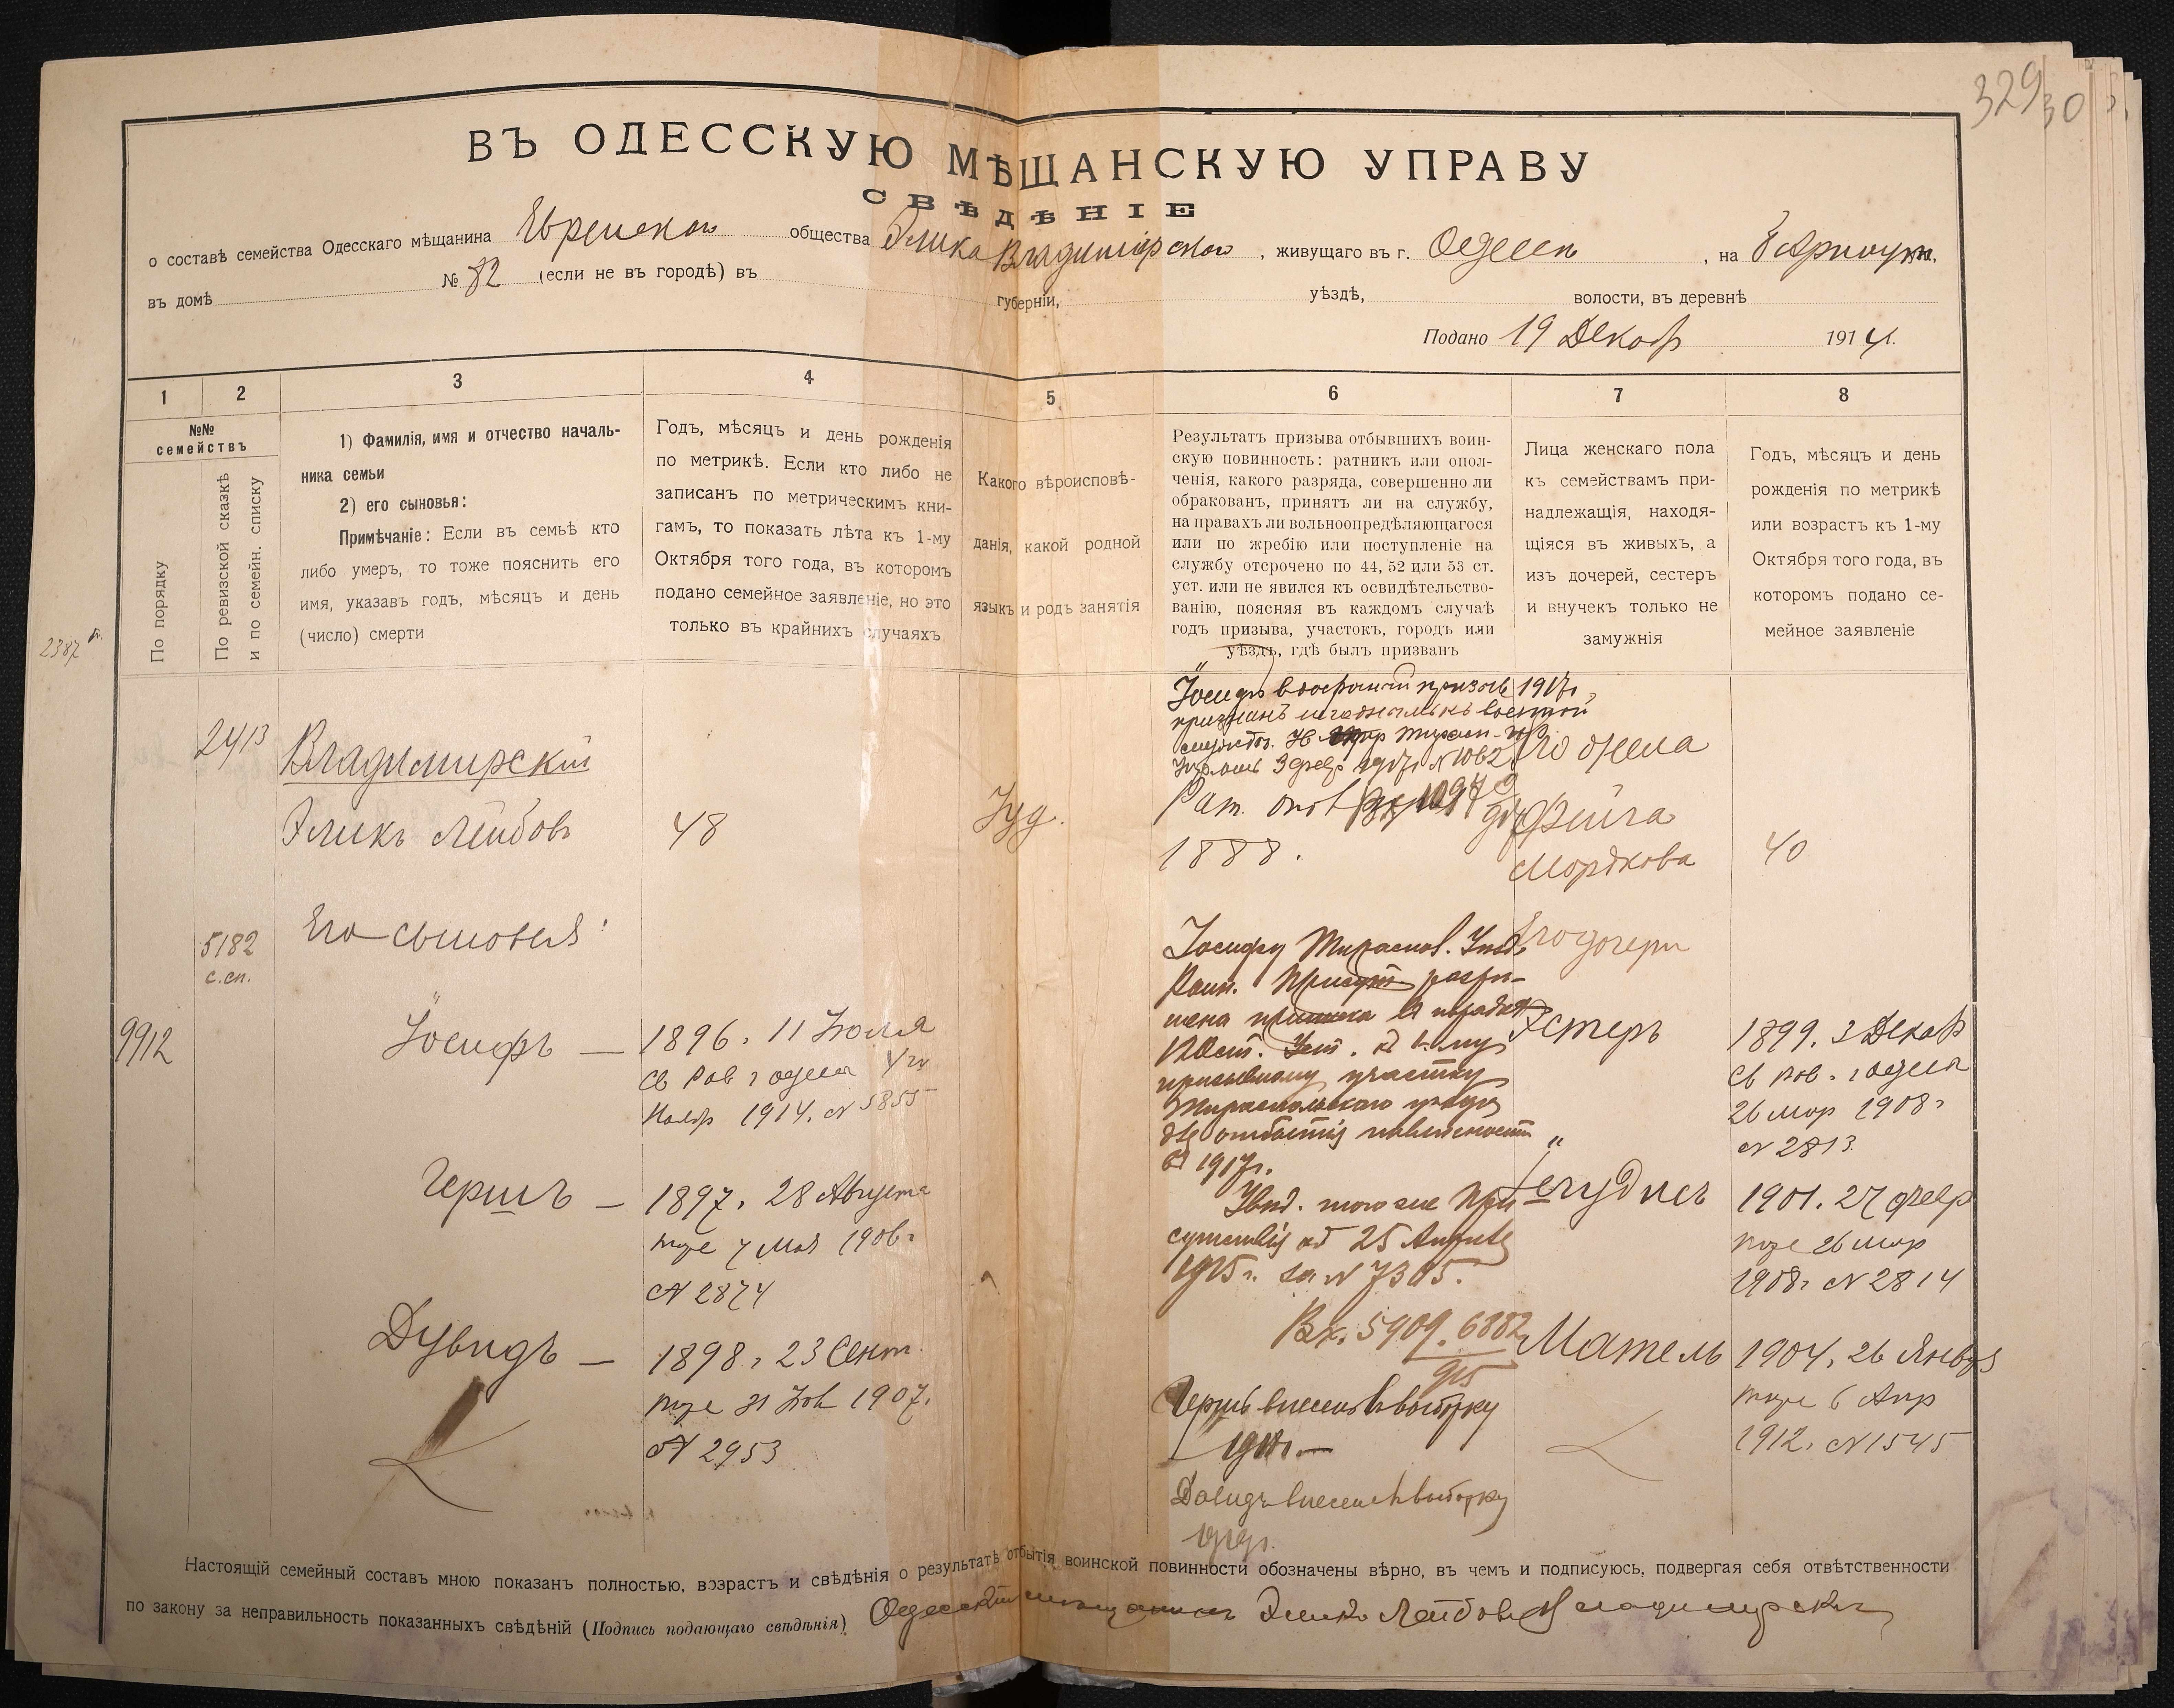 329
30
ВЪ ОДЕССКУЮ МѢЩАНСКУЮ УПРАВУ
СВѢДѢНІЕ
о составѣ семейства Одесскаго мѣщанина Еврейскаго общества Элика Владимірскаго, живущаго въ г. Одессѣ, на
въ домѣ № 82 (если не въ городѣ) въ губерніи, уѣздѣ, волости, въ деревнѣ
Подано 19 Декабр 1914 г.
1 2 3 4 5 6 7 8
№№
семействъ
По порядку
По ревизской сказкѣ
и по семейн. списку
1) Фамилія, имя и отчество началь-
ника семьи
2) его сыновья:
Примѣчаніе: Если въ семьѣ кто
либо умеръ, то тоже пояснить его
имя, указавъ годъ, мѣсяцъ и день
(число) смерти
Годъ, мѣсяцъ и день рожденія
по метрикѣ. Если кто либо не
записанъ по метрическимъ кни-
гамъ, то показать лѣта къ 1-му
Октября того года, въ которомъ
подано семейное заявленіе, но это
только въ крайнихъ случаяхъ
Какого вѣроисповѣ-
данія, какой родной
языкъ и родъ занятія
Результатъ призыва отбывшихъ воин-
скую повинность: ратникъ или опол-
ченія, какого разряда, совершенно ли
обракованъ, принятъ ли на службу,
на правахъ ли вольноопредѣляющагося
или по жребію или поступленіе на
службу отсрочено по 44, 52 или 53 ст.
уст. или не явился къ освидѣтельство-
ванію, поясняя въ каждомъ случаѣ
годъ призыва, участокъ, городъ или
уѣздъ, гдѣ былъ призванъ
Лица женскаго пола
къ семействамъ при-
надлежащія, находя-
щіяся въ живыхъ, а
изъ дочерей, сестеръ
и внучекъ только не
замужнія
Годъ, мѣсяцъ и день
рожденія по метрикѣ
или возрастъ къ 1-му
Октября того года, въ
которомъ подано се-
мейное заявленіе
2387
2413
Владимирскій
Эликъ Лейбовъ
48
Іуд.
Іосифъ призывѣ 1917г.
признанъ
3 февр 1917г. N 1062
Рат.
1888.
Его жена
Фейга
Мордкова
40
5182
с.сп.
Его сыновья:
9912
Іосифъ —
1896. 11 Іюля
св Рав г Одессы 4го
Ноябр 1914. N 5855
Гершъ —
1897. 28 Августа
тоже 7 Мая 1906г
N 2874
Дувидъ —
1898. 23 Сент.
тоже 31 1907.
N 2953
Іосифу Тираспол. Уѣзд.
Воин. Присут разрѣ-
шена приписка въ порядкѣ
Уст. къ 1-му
призывному участку
Тираспольскаго уѣзда
для отбытія повинности
въ 1917г.
Увѣд. того же При
сутствія отъ 25 Августа
1915г. за N 7305.
Вх. 5909. 6882
915
Гершъ внесенъ въ выборку
Давидъ внесенъ въ выборку
Его дочери
Эстеръ
1899. 3 Декабр
Св Рав. г Одессы
26 мар 1908г
N 2813.
Іегудисъ
1901. 27 февр
тоже 26 мар
1908г N 2814
Матель
1904. 26 Января
тоже 6 Апр
1912. N 1545
Настоящій семейный составъ мною показанъ полностью, возрастъ и свѣдѣнія о результатѣ отбытія воинской повинности обозначены вѣрно, въ чемъ и подписуюсь, подвергая себя отвѣтственности
по закону за неправильность показанныхъ свѣдѣній (Подпись подающаго свѣдѣнія) Одесскій мѣщанинъ Эликъ Лейбовъ Владимирскій